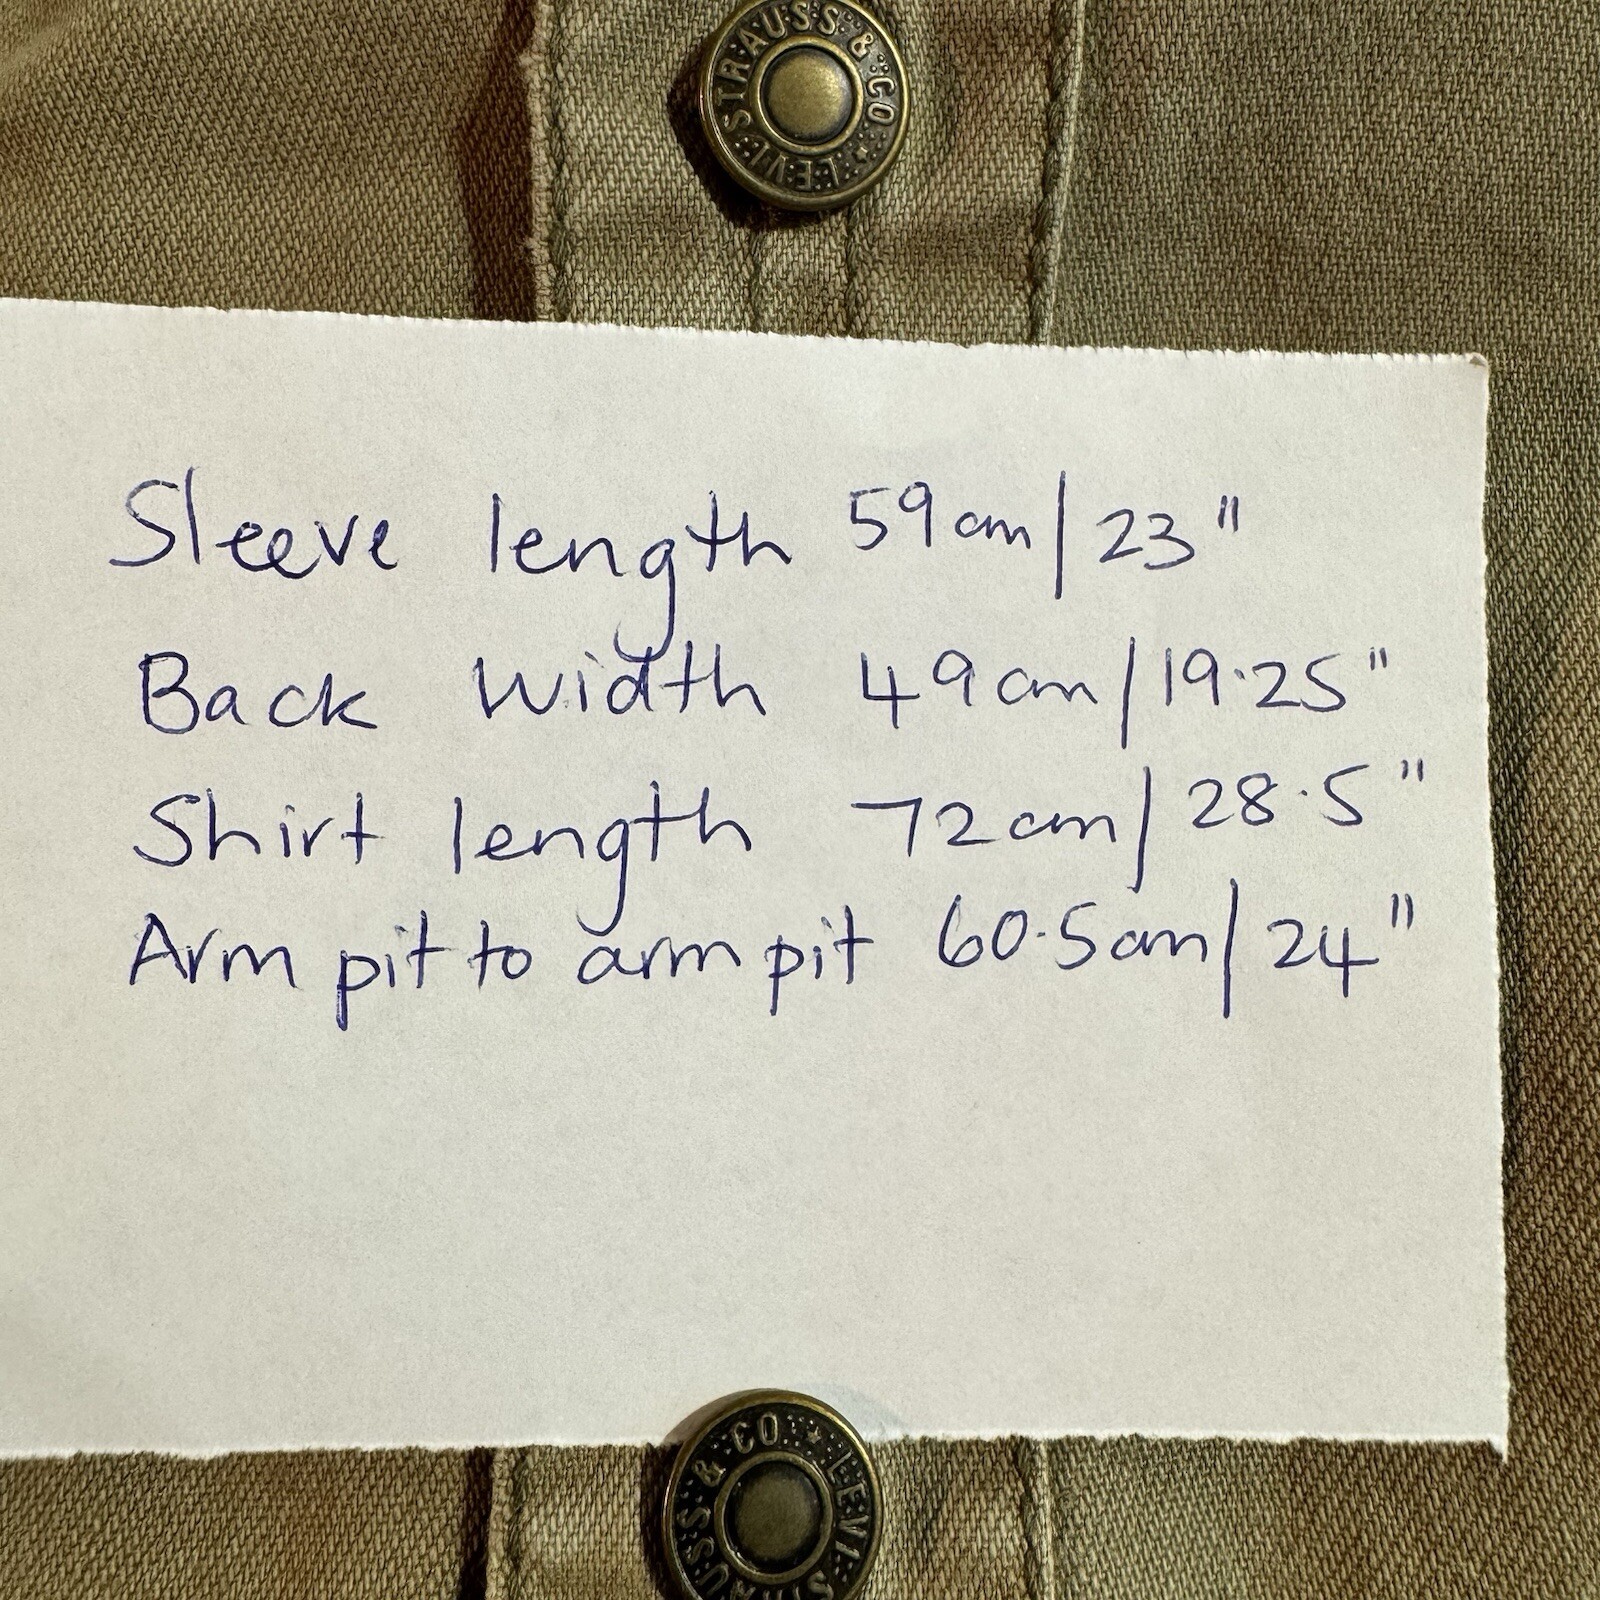 LEVI STRAUSS & CO
Sleeve length 59cm/23"
Back width 49cm/19.25"
Shirt length 72cm/28.5"
Arm pit to arm pit 60.5cm/24"
LEVI STRAUSS & CO